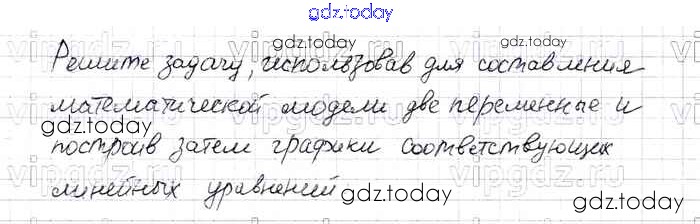 gdz.today
gdz.today
Решите задачу, использовав для составления
математической модели две переменные и
gdz.today
построив затем графики соответствующих
линейных уравнений
gdz.today